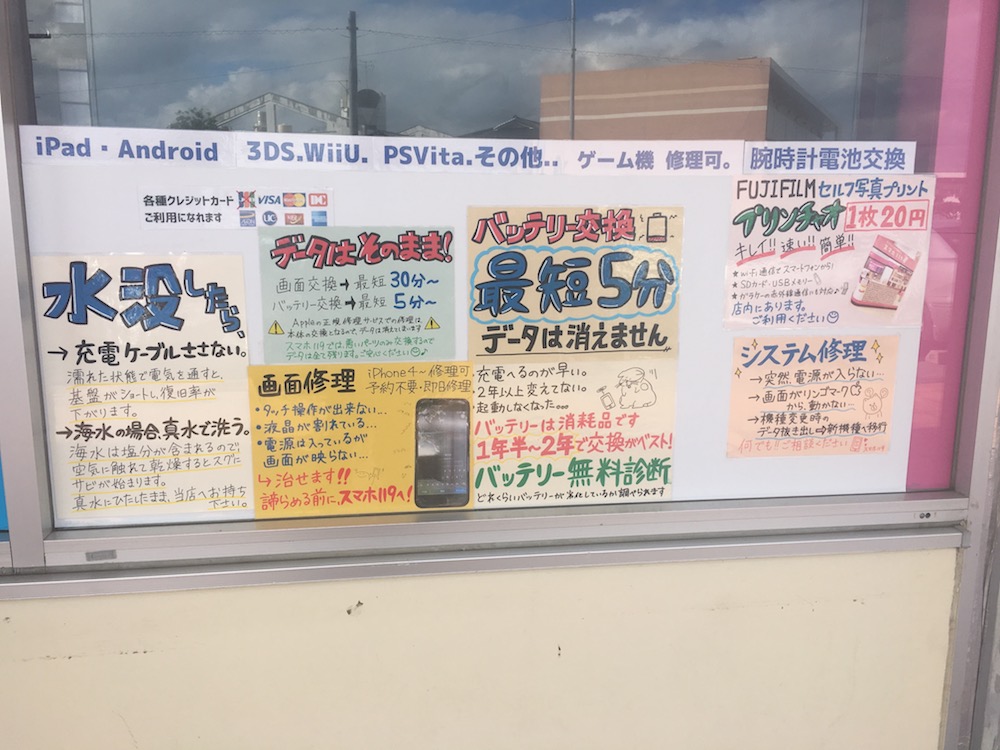 iPad・Android 3DS.WiiU. PSVita.その他.. ゲーム機 修理可。 腕時計電池交換
各種クレジットカード
ご利用になれます
JCB VISA MasterCard
UC
水没したら、
→充電ケーブルささない。
濡れた状態で電気を通すと、
基盤がショートし、復旧率が
下がります。
→海水の場合、真水で洗う。
海水は塩分が含まれるので
空気に触れて乾燥するとスグに
サビが始まります。
真水にひたしたまま、当店へお持ち
下さい。
データはそのまま!
画面交換→最短30分〜
バッテリー交換→最短5分〜
Appleの正規修理サービスでの修理は、
本体の交換となるので、データは消えてしまいます
スマホ119では、悪いパーツのみ交換するので
データは全て残ります。ご安心ください♪
画面修理 iPhone4〜修理可
予約不要・即日修理
・タッチ操作が出来ない...
・液晶が割れている...
・電源は入っているが
画面が映らない...
→治せます!!
諦める前に、スマホ119へ!
バッテリー交換
最短5分
データは消えません
充電へるのが早い。
2年以上変えてない。
起動しなくなった。。。
バッテリーは消耗品です
1年半〜2年で交換がベスト!
バッテリー無料診断
どれくらいバッテリーが劣化しているか調べられます
FUJIFILM セルフ写真プリント
プリンチャオ 1枚20円
キレイ!! 速い!! 簡単!!
★Wi-Fi通信でスマートフォンから!
★SDカード・USBメモリー
★ガラケーの赤外線通信にも対応♪
店内にあります。
ご利用ください
システム修理
→突然、電源が入らない...
→画面がリンゴマーク
から、動かない...
→機種変更時の
データ抜き出し⇒新機種へ移行
何でもご相談ください